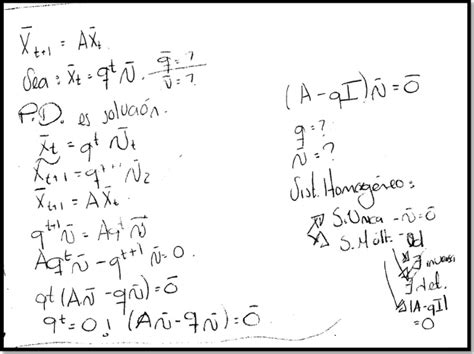 X̄ₜ₊₁ = AX̄ₜ
Sea: x̄ₜ = qᵗ v̄. q̄ = ?
v̄ = ?
P.D. es solución.
x̄ₜ = qᵗ v̄ₜ
X̄ₜ₊₁ = qᵗ⁺¹ v̄₂
X̄ₜ₊₁ = AX̄ₜ
qᵗ⁺¹ v̄ = Aqᵗ v̄
Aqᵗ v̄ - qᵗ⁺¹ v̄ = 0.
qᵗ (Av̄ - qv̄) = 0̄
qᵗ = 0! (Av̄ - qv̄) = 0̄
(A - qI) v̄ = 0̄
q = ?
v̄ = ?
Sist. Homogéneo:
S. Única - v̄ = 0̄
S. Múlt. -
∄ inversa
∄ det.
|A - qI|
= 0